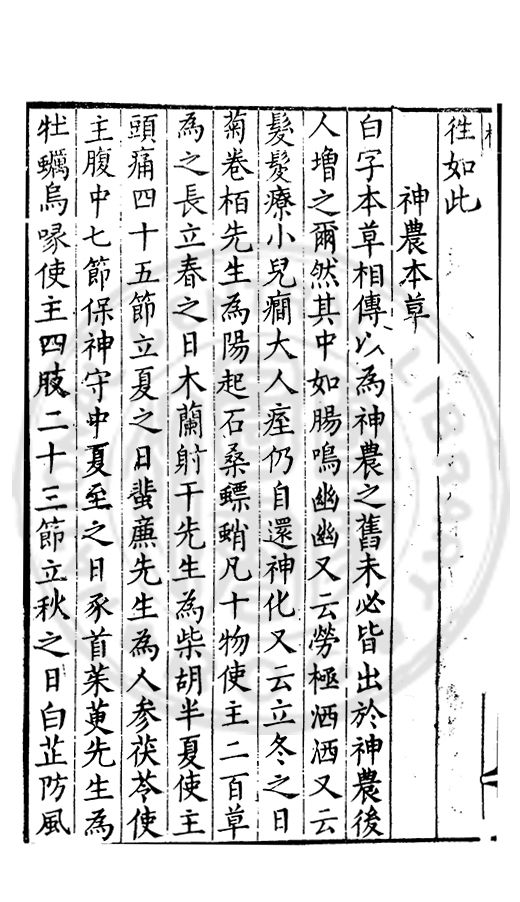 徃如此
神農本草
白字本草相傳以為神農之舊未必皆出於神農後
人增之爾然其中如腸鳴幽幽又云勞極洒洒又云
髮髲療小兒癎大人痓仍自還神化又云立冬之日
菊卷栢先生為陽起石桑螵蛸凡十物使主二百草
為之長立春之日木蘭射干先生為柴胡半夏使主
頭痛四十五節立夏之日蜚蠊先生為人參茯苓使
主腹中七節保神守中夏至之日豕首茱萸先生為
牡蠣烏喙使主四肢二十三節立秋之日白芷防風